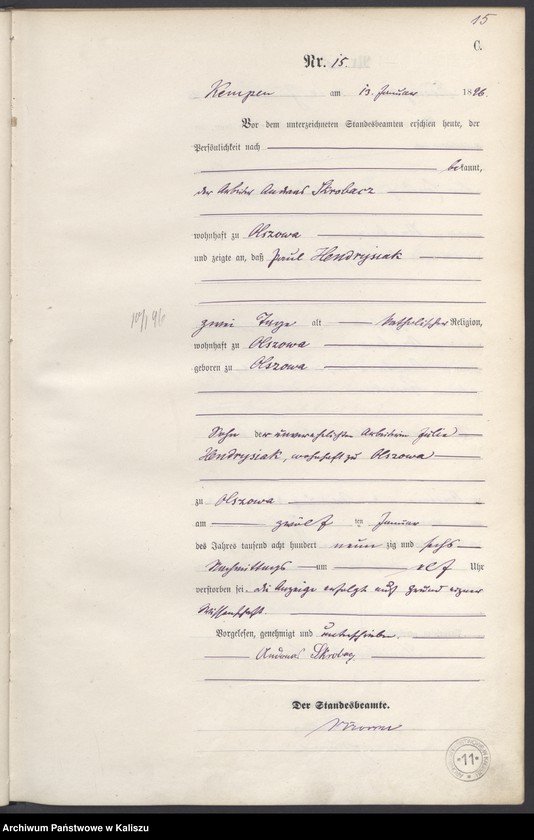 15
C.
Nr. 15.
Kempen am 13. Januar 1896.
Vor dem unterzeichneten Standesbeamten erschien heute, der
Persönlichkeit nach
bekannt,
der Arbeiter Andreas Skrobacz
wohnhaft zu Olszowa
und zeigte an, daß Paul Hendrysiak
10/1 96
zwei Tage alt katholischer Religion,
wohnhaft zu Olszowa
geboren zu Olszowa
Sohn der unverehelichten Arbeiterin Julie
Hendrysiak, wohnhaft zu Olszowa
zu Olszowa
am zwölf ten Januar
des Jahres tausend acht hundert neun zig und sechs
Nachmittags um elf Uhr
verstorben sei. Die Anzeige erfolgt auf Grund eigner
Wissenschaft.
Vorgelesen, genehmigt und unterschrieben.
Andreas Skrobacz
Der Standesbeamte.
*11*
Archiwum Państwowe w Kaliszu